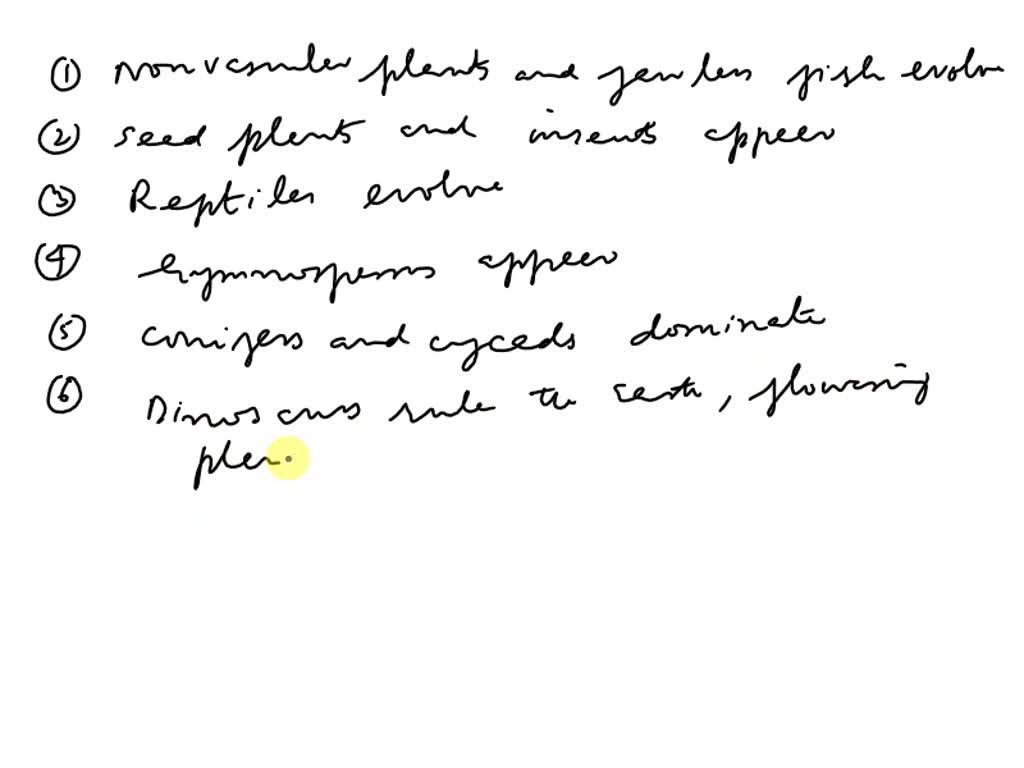 ① Nonvascular plants and jawless fish evolve
② seed plants and insects appear
③ Reptiles evolve
④ Gymnosperms appear
⑤ conifers and cycads dominate
⑥ Dinosaurs rule the earth, flowering
plan